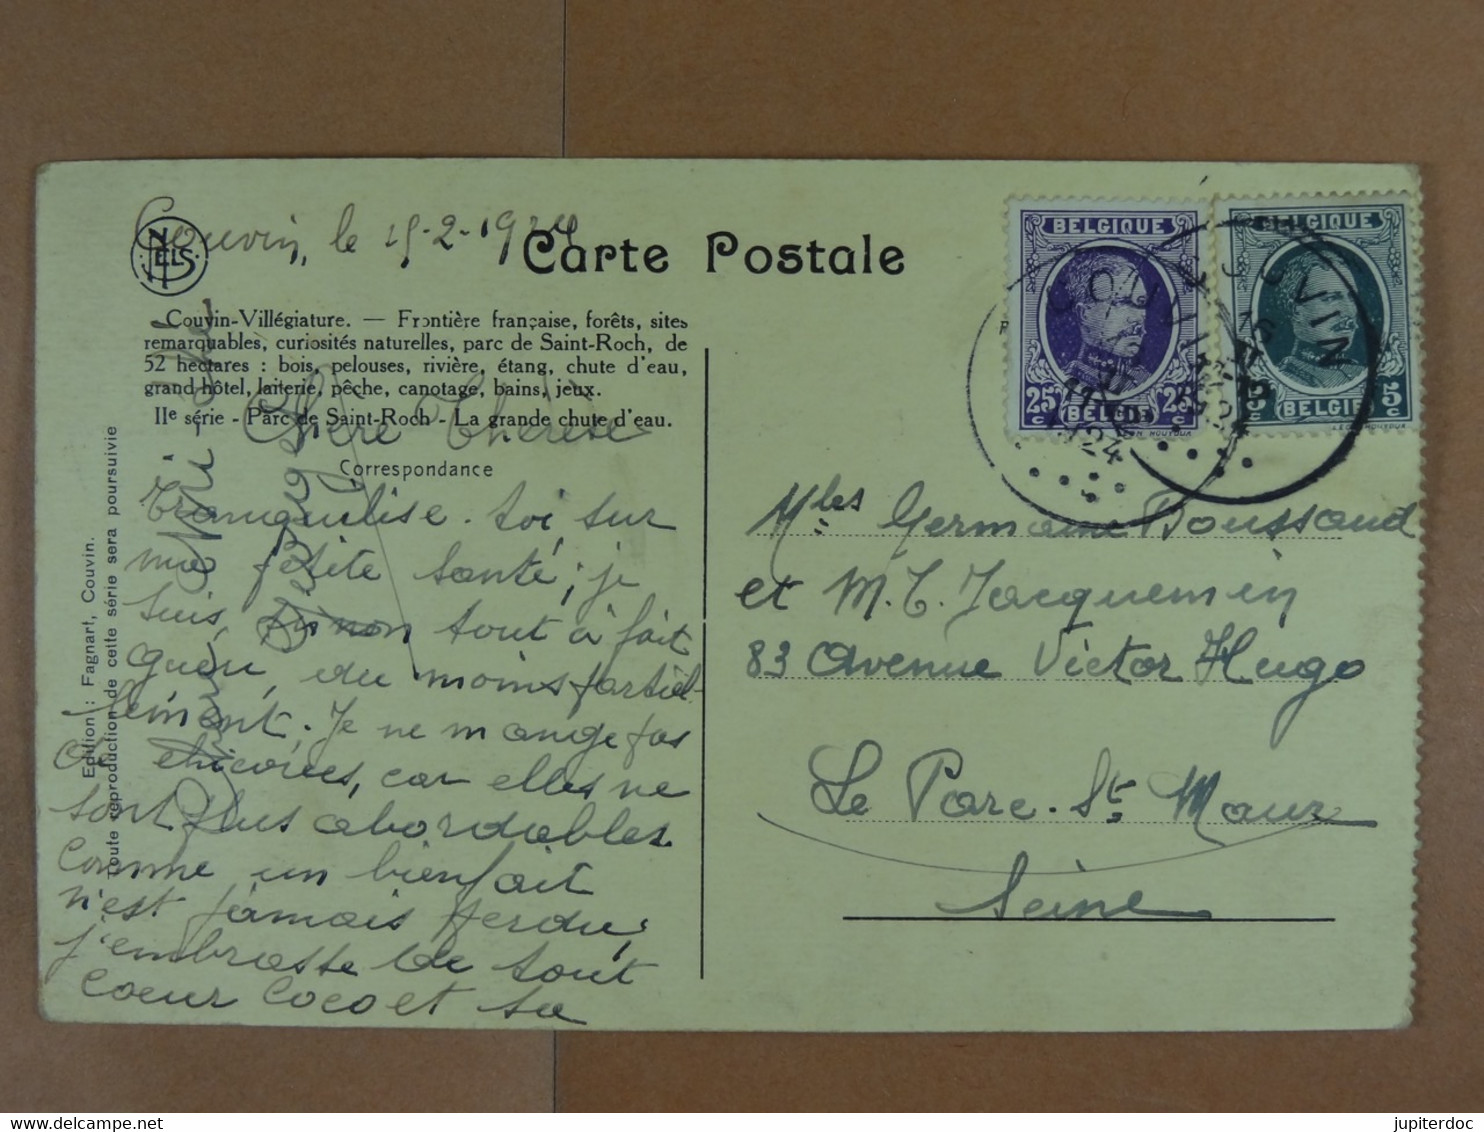 Couvin, le 15-2-1924
NELS
Carte Postale
Couvin-Villégiature. — Frontière française, forêts, sites
remarquables, curiosités naturelles, parc de Saint-Roch, de
52 hectares : bois, pelouses, rivière, étang, chute d'eau,
grand hôtel, laiterie, pêche, canotage, bains, jeux.
IIe série - Parc de Saint-Roch - La grande chute d'eau.
Chère Thérèse
Correspondance
Tranquilise-toi sur
ma petite santé ; je
suis, sinon tout à fait
guéri, du moins partiel-
lement. Je ne mange pas
de chicorées, car elles ne
sont plus abordables.
Comme un bienfait
n'est jamais perdu,
j'embrasse de tout
coeur Coco et sa
Edition : Fagnart, Couvin.
Toute reproduction de cette série sera poursuivie
BELGIQUE
25c 25c
BELGIQUE
BELGIE 5c
COUVIN
1924
COUVIN
Mlles Germaine Boussaud
et M. T. Jacquemin
83 Avenue Victor Hugo
Le Parc-St Maur
Seine
jupiterdoc